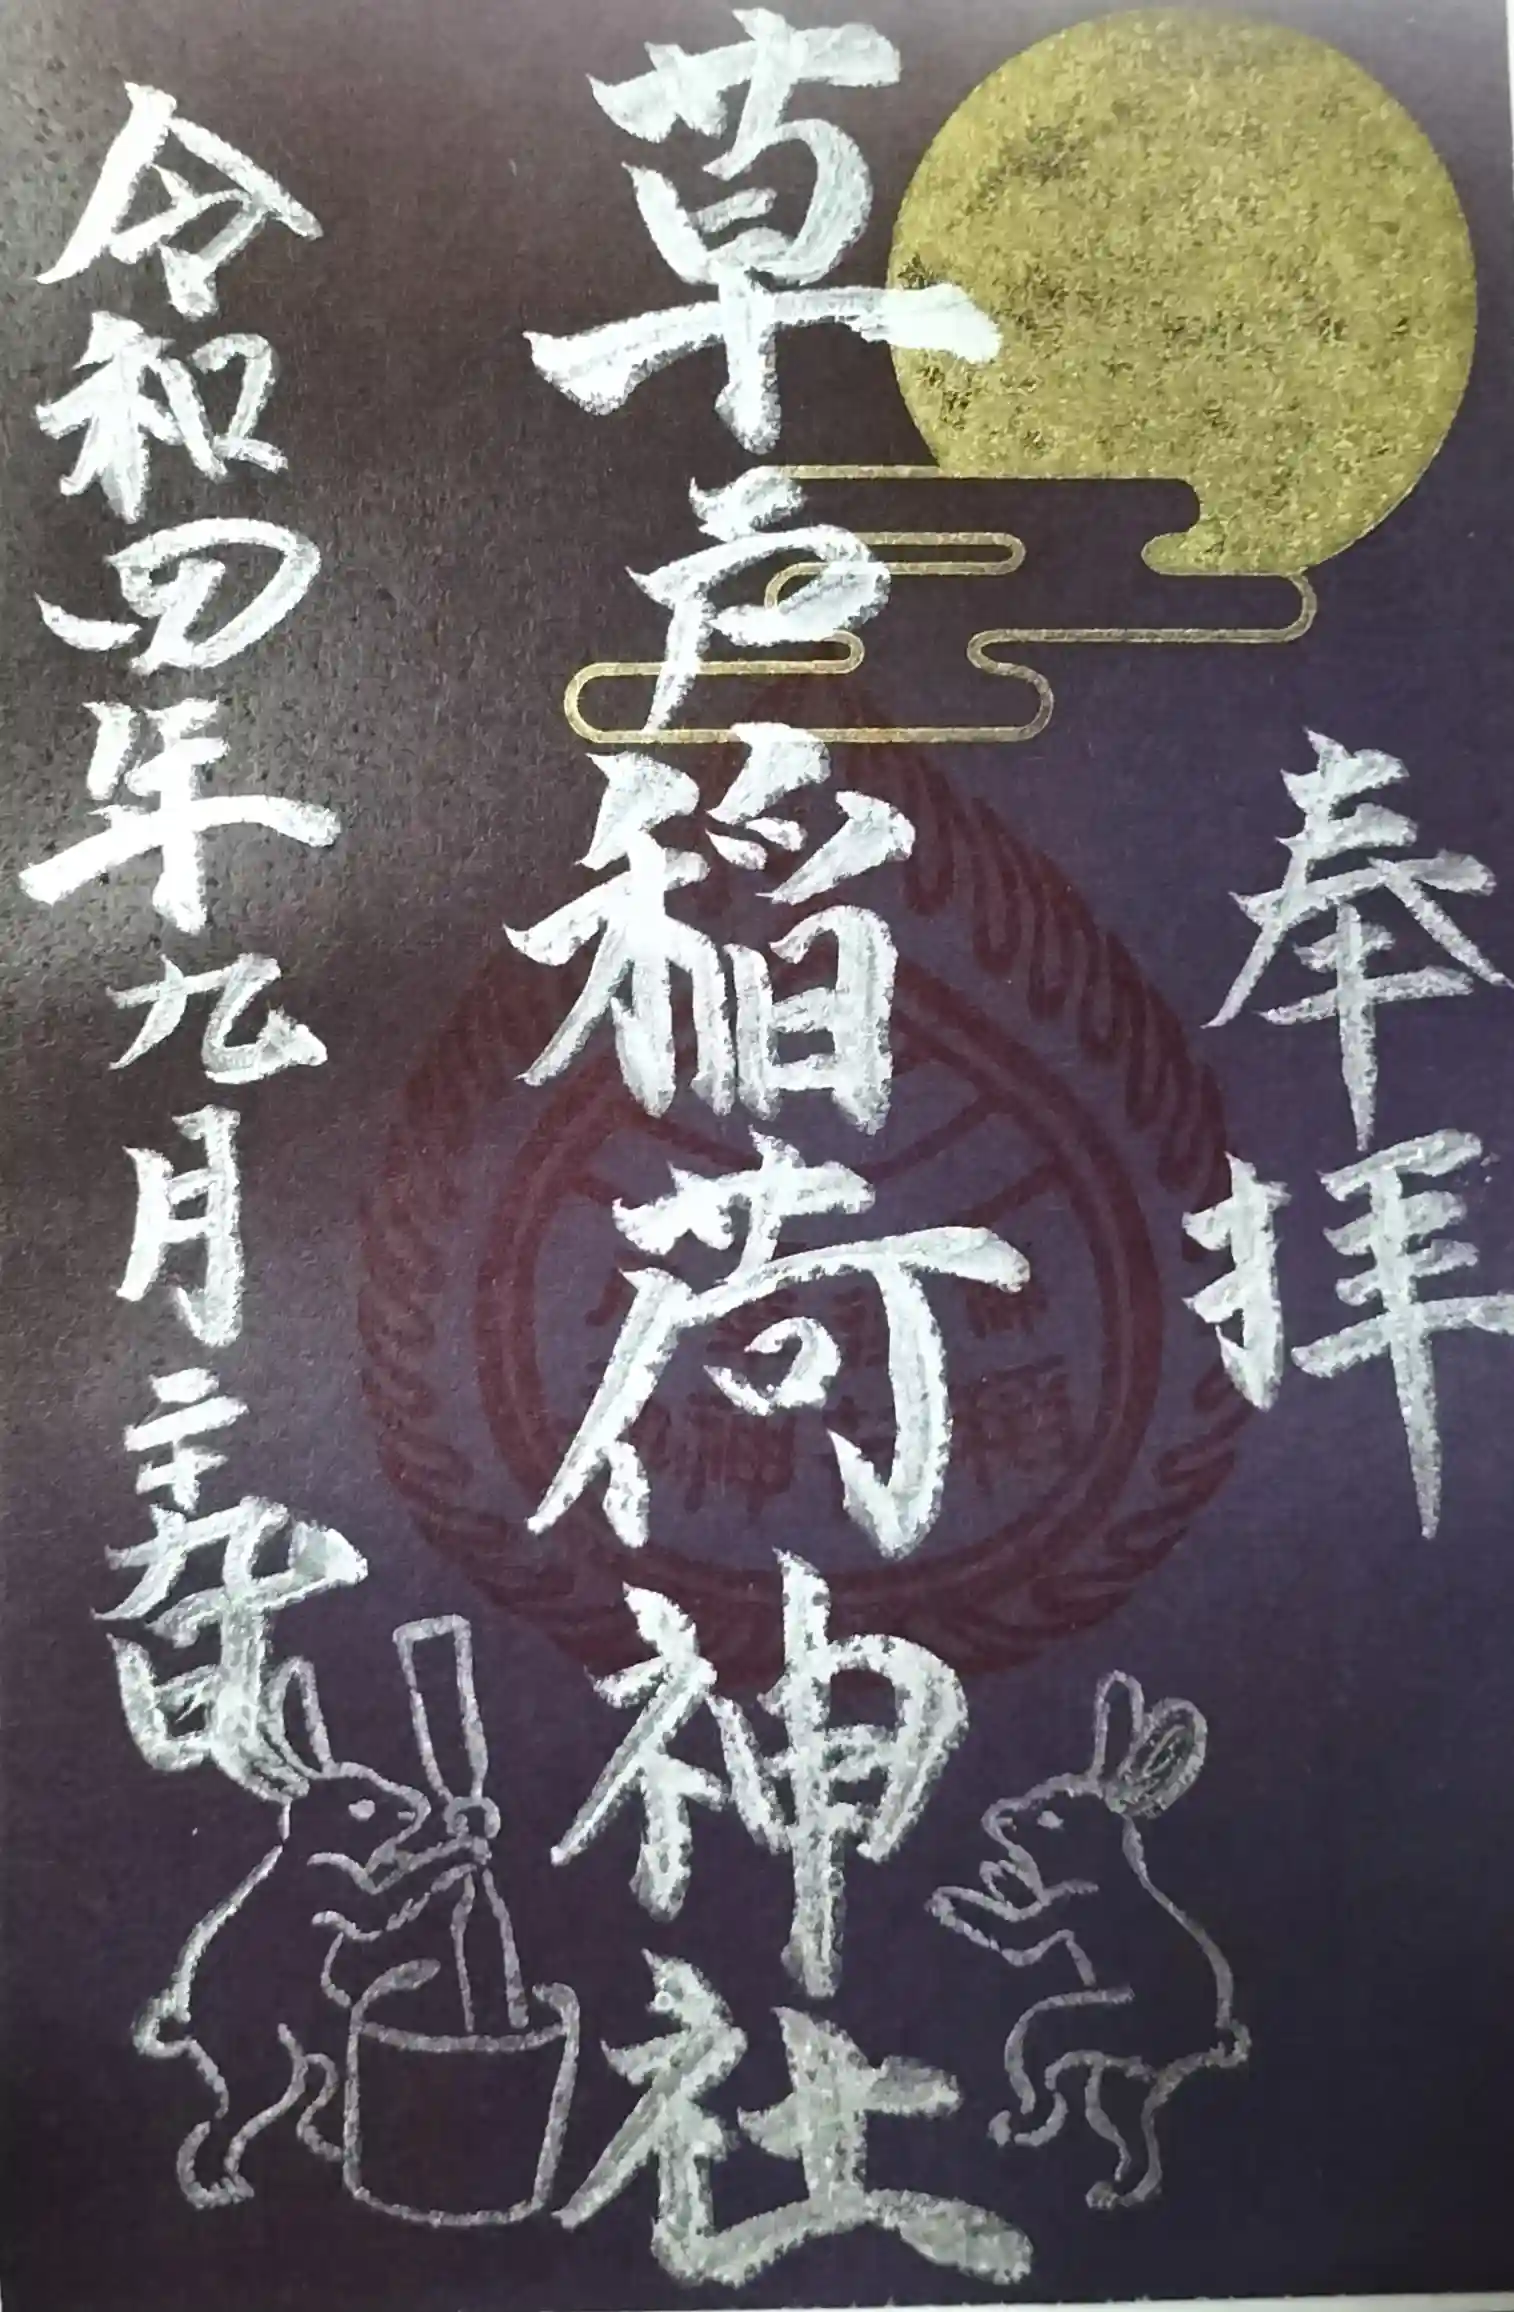 奉拝
草戸稲荷神社
令和四年九月二十九日